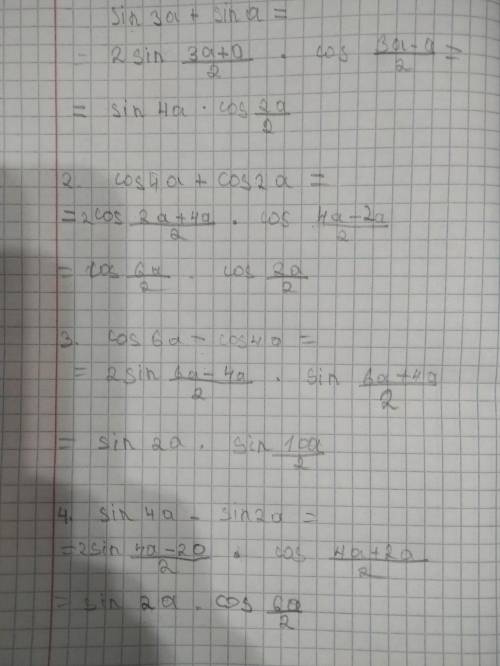 sin 3a + sin a =
= 2 sin (3a+a)/2 · cos (3a-a)/2 =
= sin 4a · cos 2a/2
2. cos 4a + cos 2a =
= 2cos (2a+4a)/2 · cos (4a-2a)/2
= cos 6a/2 · cos 2a/2
3. cos 6a - cos 4a =
= 2 sin (6a-4a)/2 · sin (6a+4a)/2
= sin 2a · sin 10a/2
4. sin 4a - sin 2a =
= 2sin (4a-2a)/2 · cos (4a+2a)/2
= sin 2a · cos 6a/2